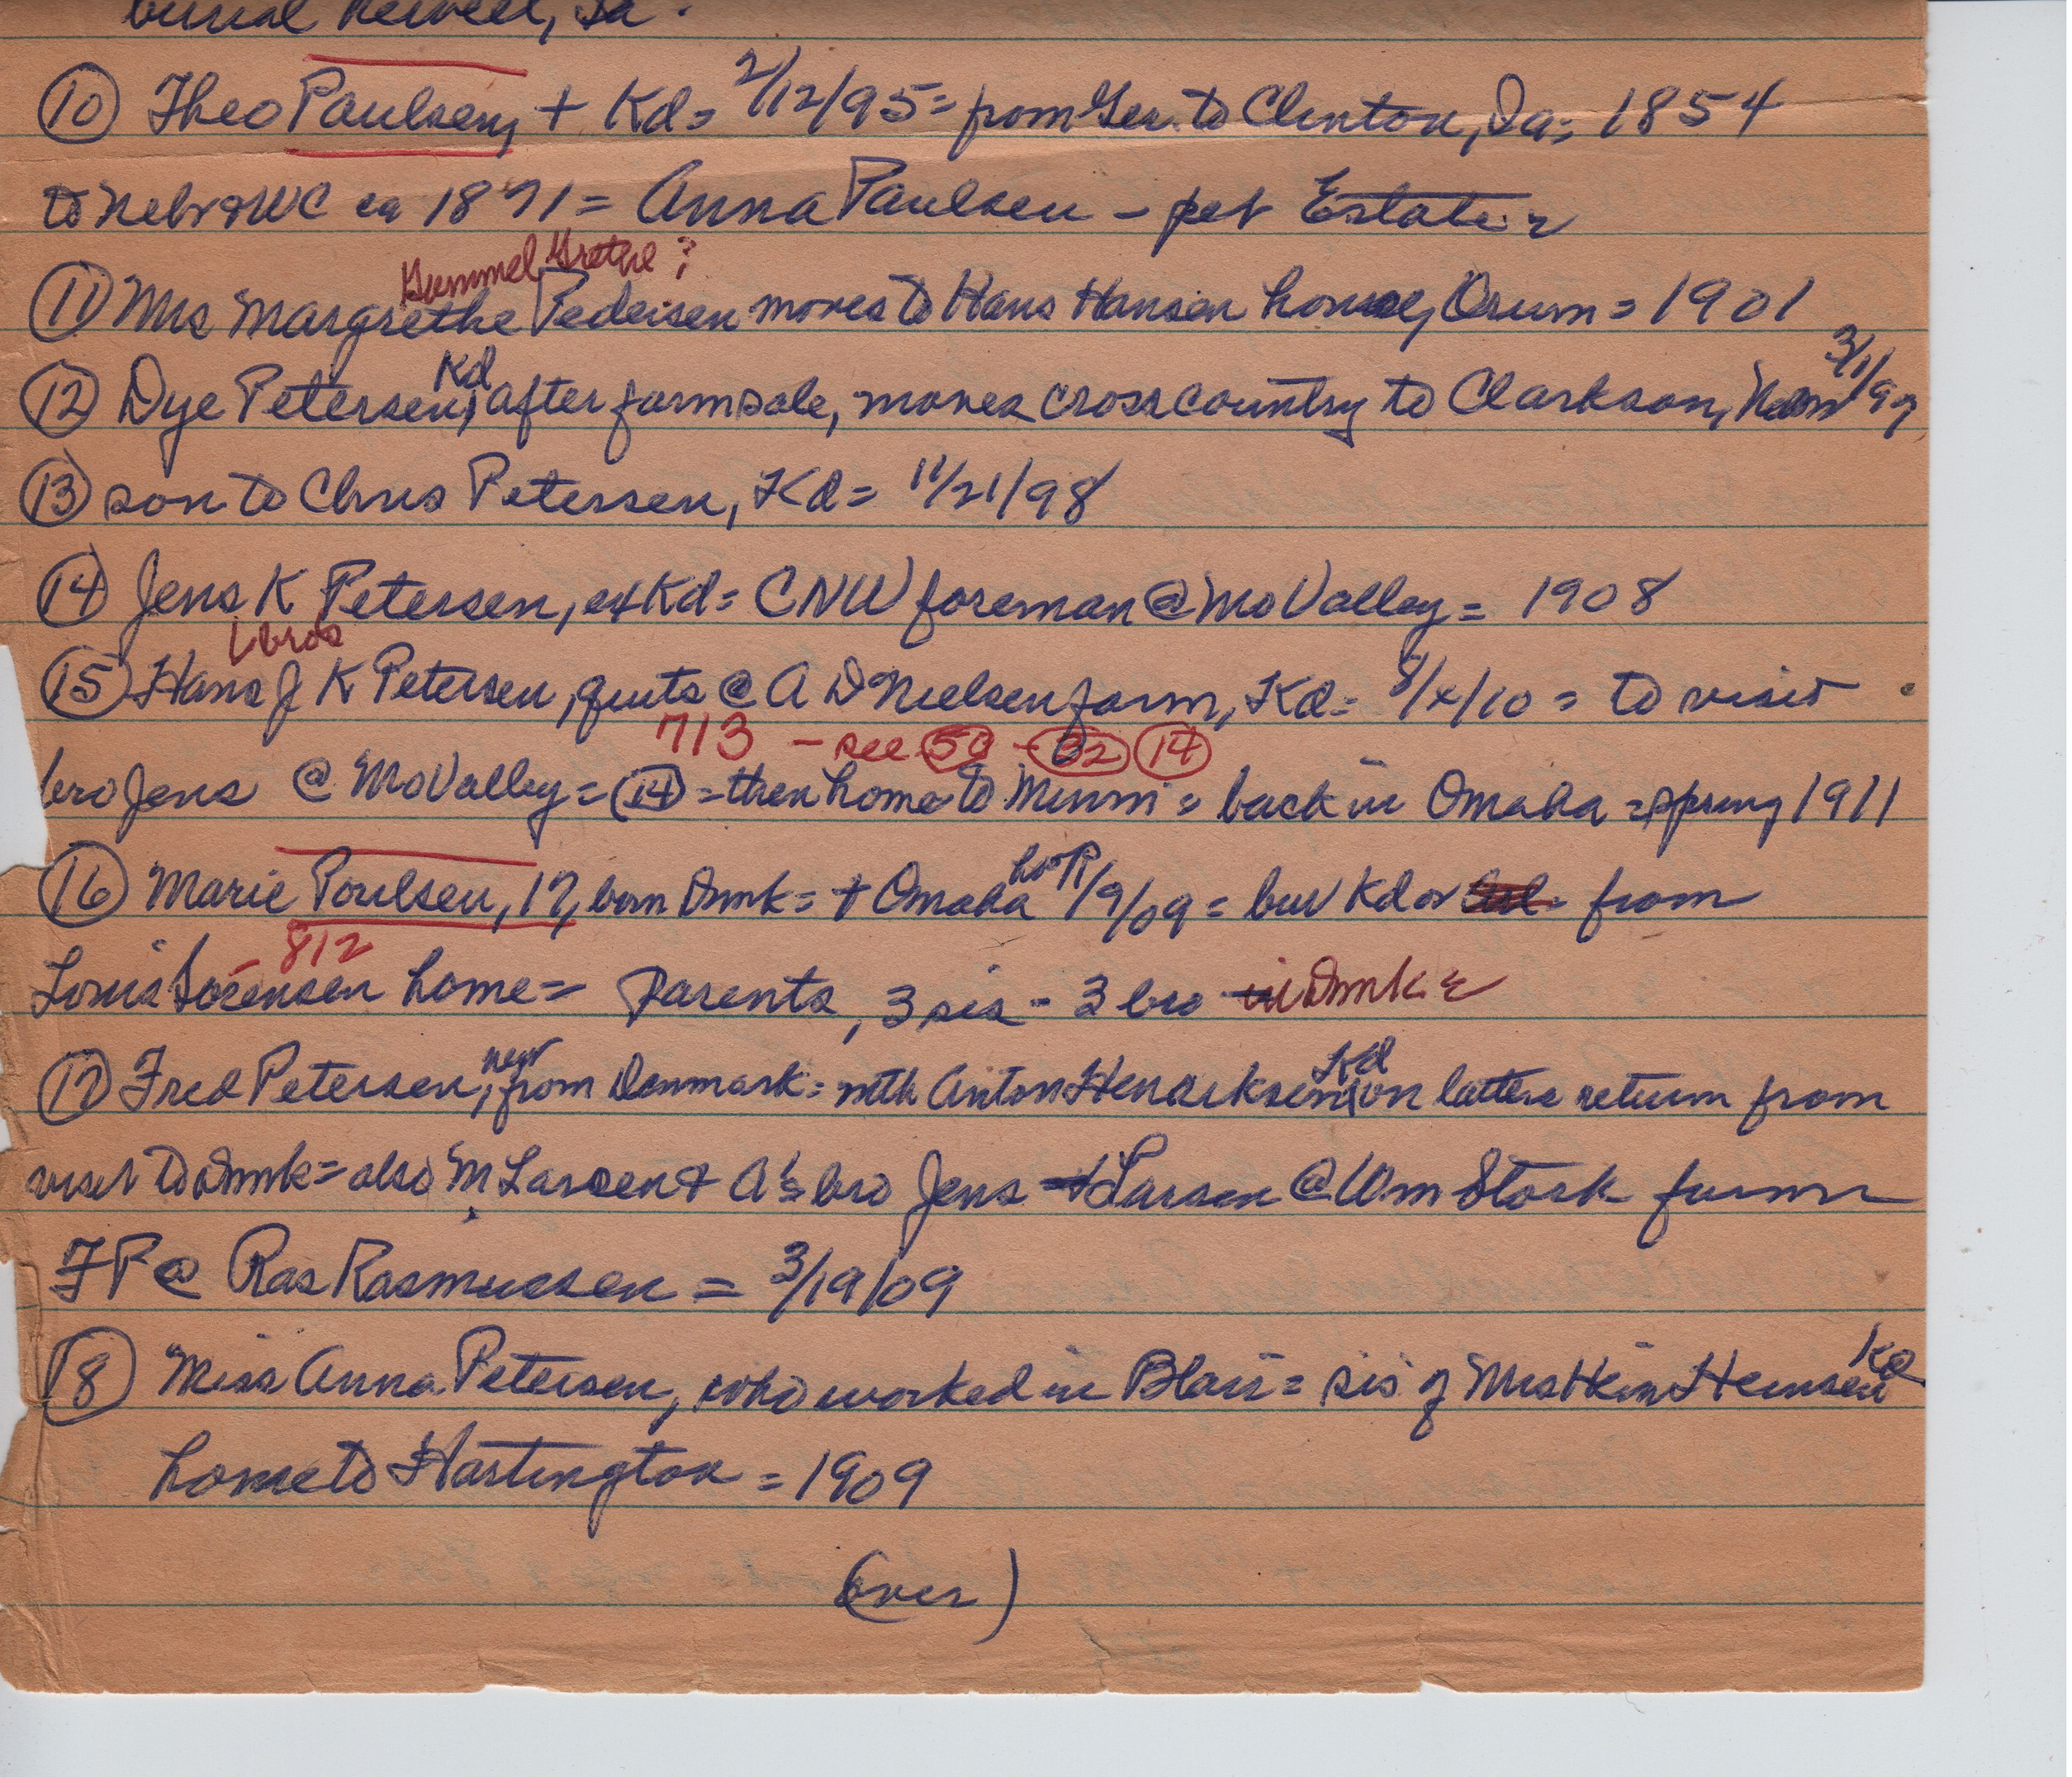 burial Newell, Ia.
(10) Theo Paulsen, + Kd = 2/12/95 = from Ger. to Clinton, Ia = 1854
to Nebr & WC ca 1871 = Anna Paulsen - pet Estate
Gammel Grethe?
(11) Mrs Margrethe Pedersen moves to Hans Hansen home, Orum = 1901
Kd 3/1/99
(12) Dye Petersen, after farm sale, moves cross country to Clarkson,
(13) son to Chris Petersen, Kd = 11/21/98
(14) Jens K Petersen, ex Kd = CNW foreman @ Mo Valley = 1908
bros
(15) Hans J K Petersen, quits @ A D Nielsen farm, Kd = 8/4/10 = to visit
713 - see (50) - (32) (14)
bro Jens @ Mo Valley = (14) = then home to Minn = back in Omaha = spring 1911
hosp
(16) Marie Poulsen, 17, born Dmk = + Omaha 1/9/09 = bur Kd from
- 812
Louis Sorensen home = Parents, 3 sis - 3 bro in Dmk
new Kd
(17) Fred Petersen, from Denmark = with Anton Henricksen, on latters return from
visit to Dmk = also M Larsen & A's bro Jens Larsen @ Wm Stork farm
FP @ Ras Rasmussen = 3/19/09
Kd
(18) Miss Anna Petersen, who worked in Blair = sis of Mrs
home to Hartington = 1909
(over)